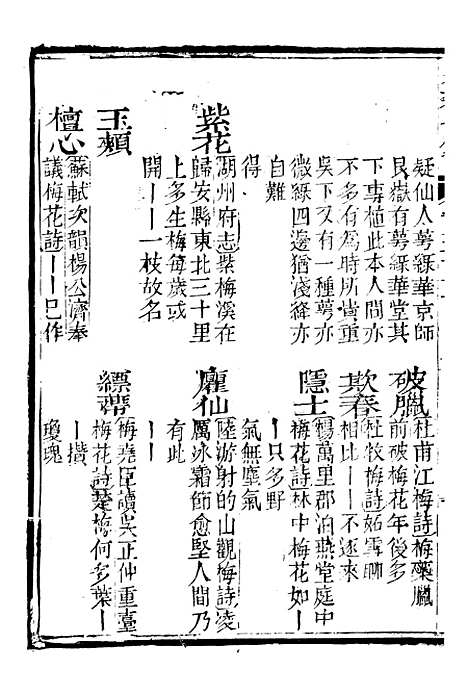 疑仙人萼綠華京師
艮嶽有萼綠華堂其
下專植此本人間亦
不多有爲時所貴重
吳下又有一種萼亦
微綠四邊猶淺絳亦
自難
得
紫花
湖州府志紫梅溪在
歸安縣東北三十里
上多生梅每歲或
開——一枝故名
玉頰
檀心
蘇軾次韻楊公濟奉
議梅花詩——已作
破臘
杜甫江梅詩梅蘂臘
前破梅花年後多
欺春
杜牧梅詩妬雪聊
相比——不逐來
隱士
楊萬里郡泊燕堂庭中
梅花詩林中梅花如—
—只多野
氣無塵氣
臞仙
陸游射的山觀梅詩凌
厲冰霜節愈堅人間乃
有此
——
縹蔕
梅堯臣讀吳正仲重臺
梅花詩楚梅何多葉—
—攢
瓊瑰